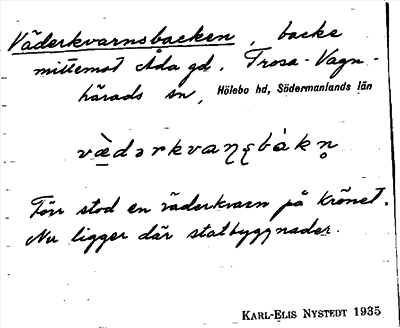 Väderkvarnsbacken, backe
mittemot Åda gd. Trosa-Vagn-
härads sn, Hölebo hd, Södermanlands län
Förr stod en väderkvarn på krönet.
Nu ligger där statbyggnader.
KARL-ELIS NYSTEDT 1935